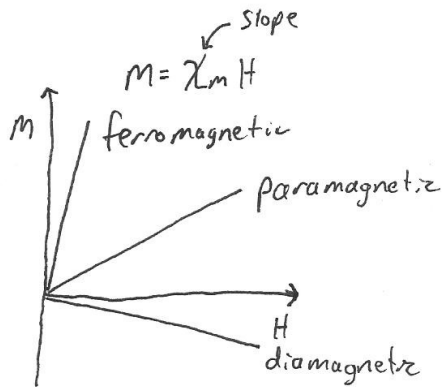 slope
M = χm H
M
ferromagnetic
paramagnetic
H
diamagnetic